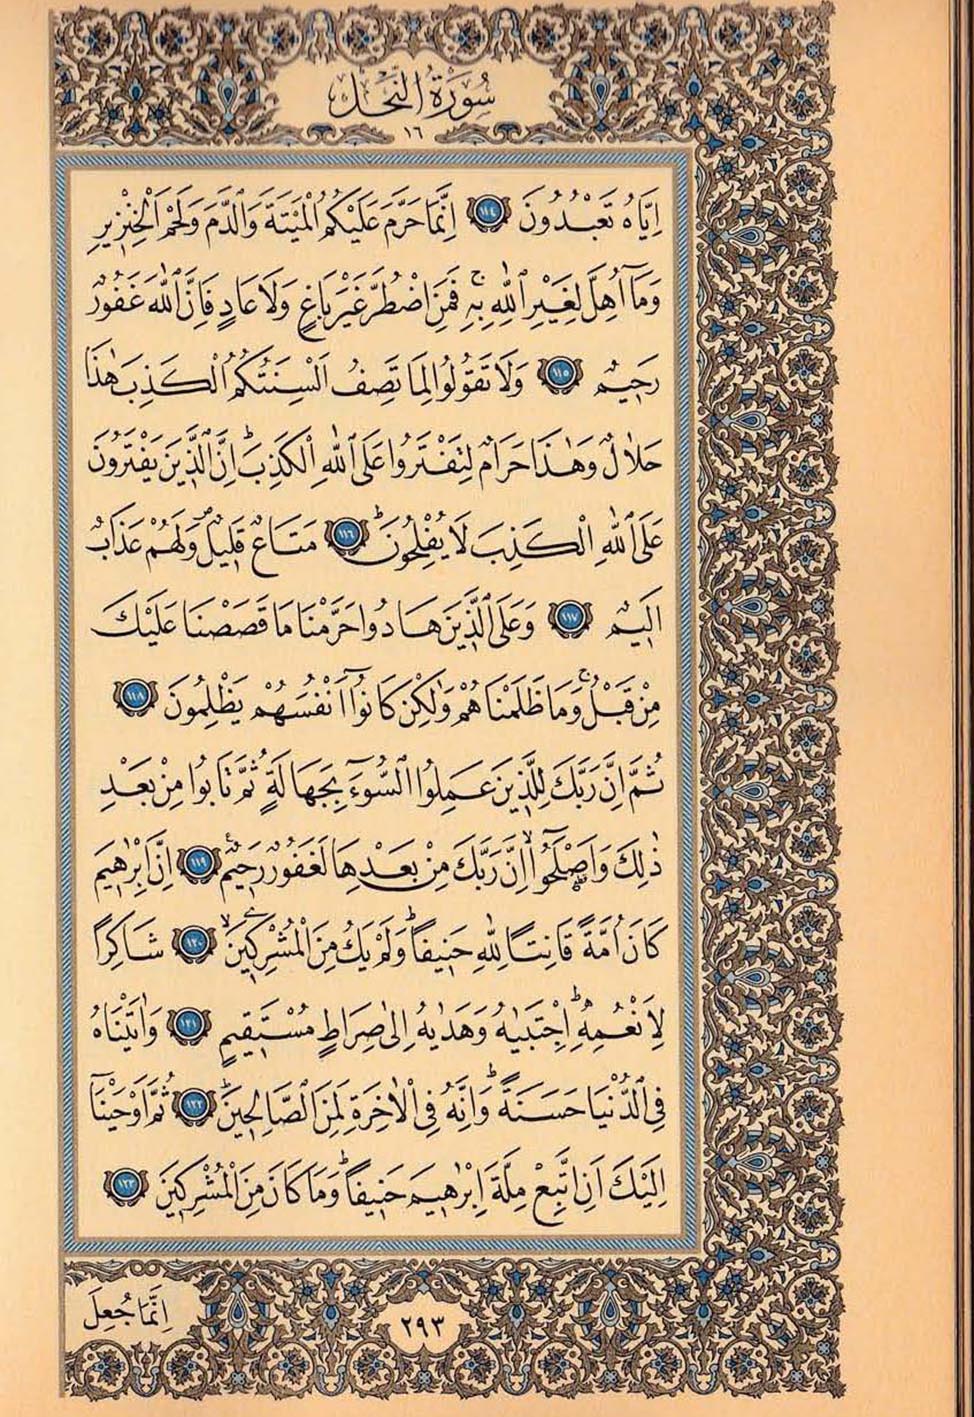 سُورَةُ النَّحْل
١٦
اِيَّاهُ تَعْبُدُونَ ١١٤ اِنَّمَا حَرَّمَ عَلَيْكُمُ الْمَيْتَةَ وَالدَّمَ وَلَحْمَ الْخِنْزِيرِ
وَمَٓا اُهِلَّ لِغَيْرِ اللّٰهِ بِهٖۚ فَمَنِ اضْطُرَّ غَيْرَ بَاغٍ وَلَا عَادٍ فَاِنَّ اللّٰهَ غَفُورٌ
رَحٖيمٌ ١١٥ وَلَا تَقُولُوا لِمَا تَصِفُ اَلْسِنَتُكُمُ الْكَذِبَ هٰذَا
حَلَالٌ وَهٰذَا حَرَامٌ لِتَفْتَرُوا عَلَى اللّٰهِ الْكَذِبَؕ اِنَّ الَّذٖينَ يَفْتَرُونَ
عَلَى اللّٰهِ الْكَذِبَ لَا يُفْلِحُونَؕ ١١٦ مَتَاعٌ قَلٖيلٌࣕ وَلَهُمْ عَذَابٌ
اَلٖيمٌ ١١٧ وَعَلَى الَّذٖينَ هَادُوا حَرَّمْنَا مَا قَصَصْنَا عَلَيْكَ
مِنْ قَبْلُۚ وَمَا ظَلَمْنَاهُمْ وَلٰكِنْ كَانُٓوا اَنْفُسَهُمْ يَظْلِمُونَ ١١٨
ثُمَّ اِنَّ رَبَّكَ لِلَّذٖينَ عَمِلُوا السُّٓوءَ بِجَهَالَةٍ ثُمَّ تَابُوا مِنْ بَعْدِ
ذٰلِكَ وَاَصْلَحُٓواۙ اِنَّ رَبَّكَ مِنْ بَعْدِهَا لَغَفُورٌ رَحٖيمٌࣖ ١١٩ اِنَّ اِبْرٰهٖيمَ
كَانَ اُمَّةً قَانِتًا لِلّٰهِ حَنٖيفًاؕ وَلَمْ يَكُ مِنَ الْمُشْرِكٖينَۙ ١٢٠ شَاكِرًا
لِاَنْعُمِهٖؕ اِجْتَبٰيهُ وَهَدٰيهُ اِلٰى صِرَاطٍ مُسْتَقٖيمٍ ١٢١ وَاٰتَيْنَاهُ
فِى الدُّنْيَا حَسَنَةًؕ وَاِنَّهُ فِى الْاٰخِرَةِ لَمِنَ الصَّالِحٖينَؕ ١٢٢ ثُمَّ اَوْحَيْنَٓا
اِلَيْكَ اَنِ اتَّبِعْ مِلَّةَ اِبْرٰهٖيمَ حَنٖيفًاؕ وَمَا كَانَ مِنَ الْمُشْرِكٖينَ ١٢٣
اِنَّمَا جُعِلَ
٢٩٣